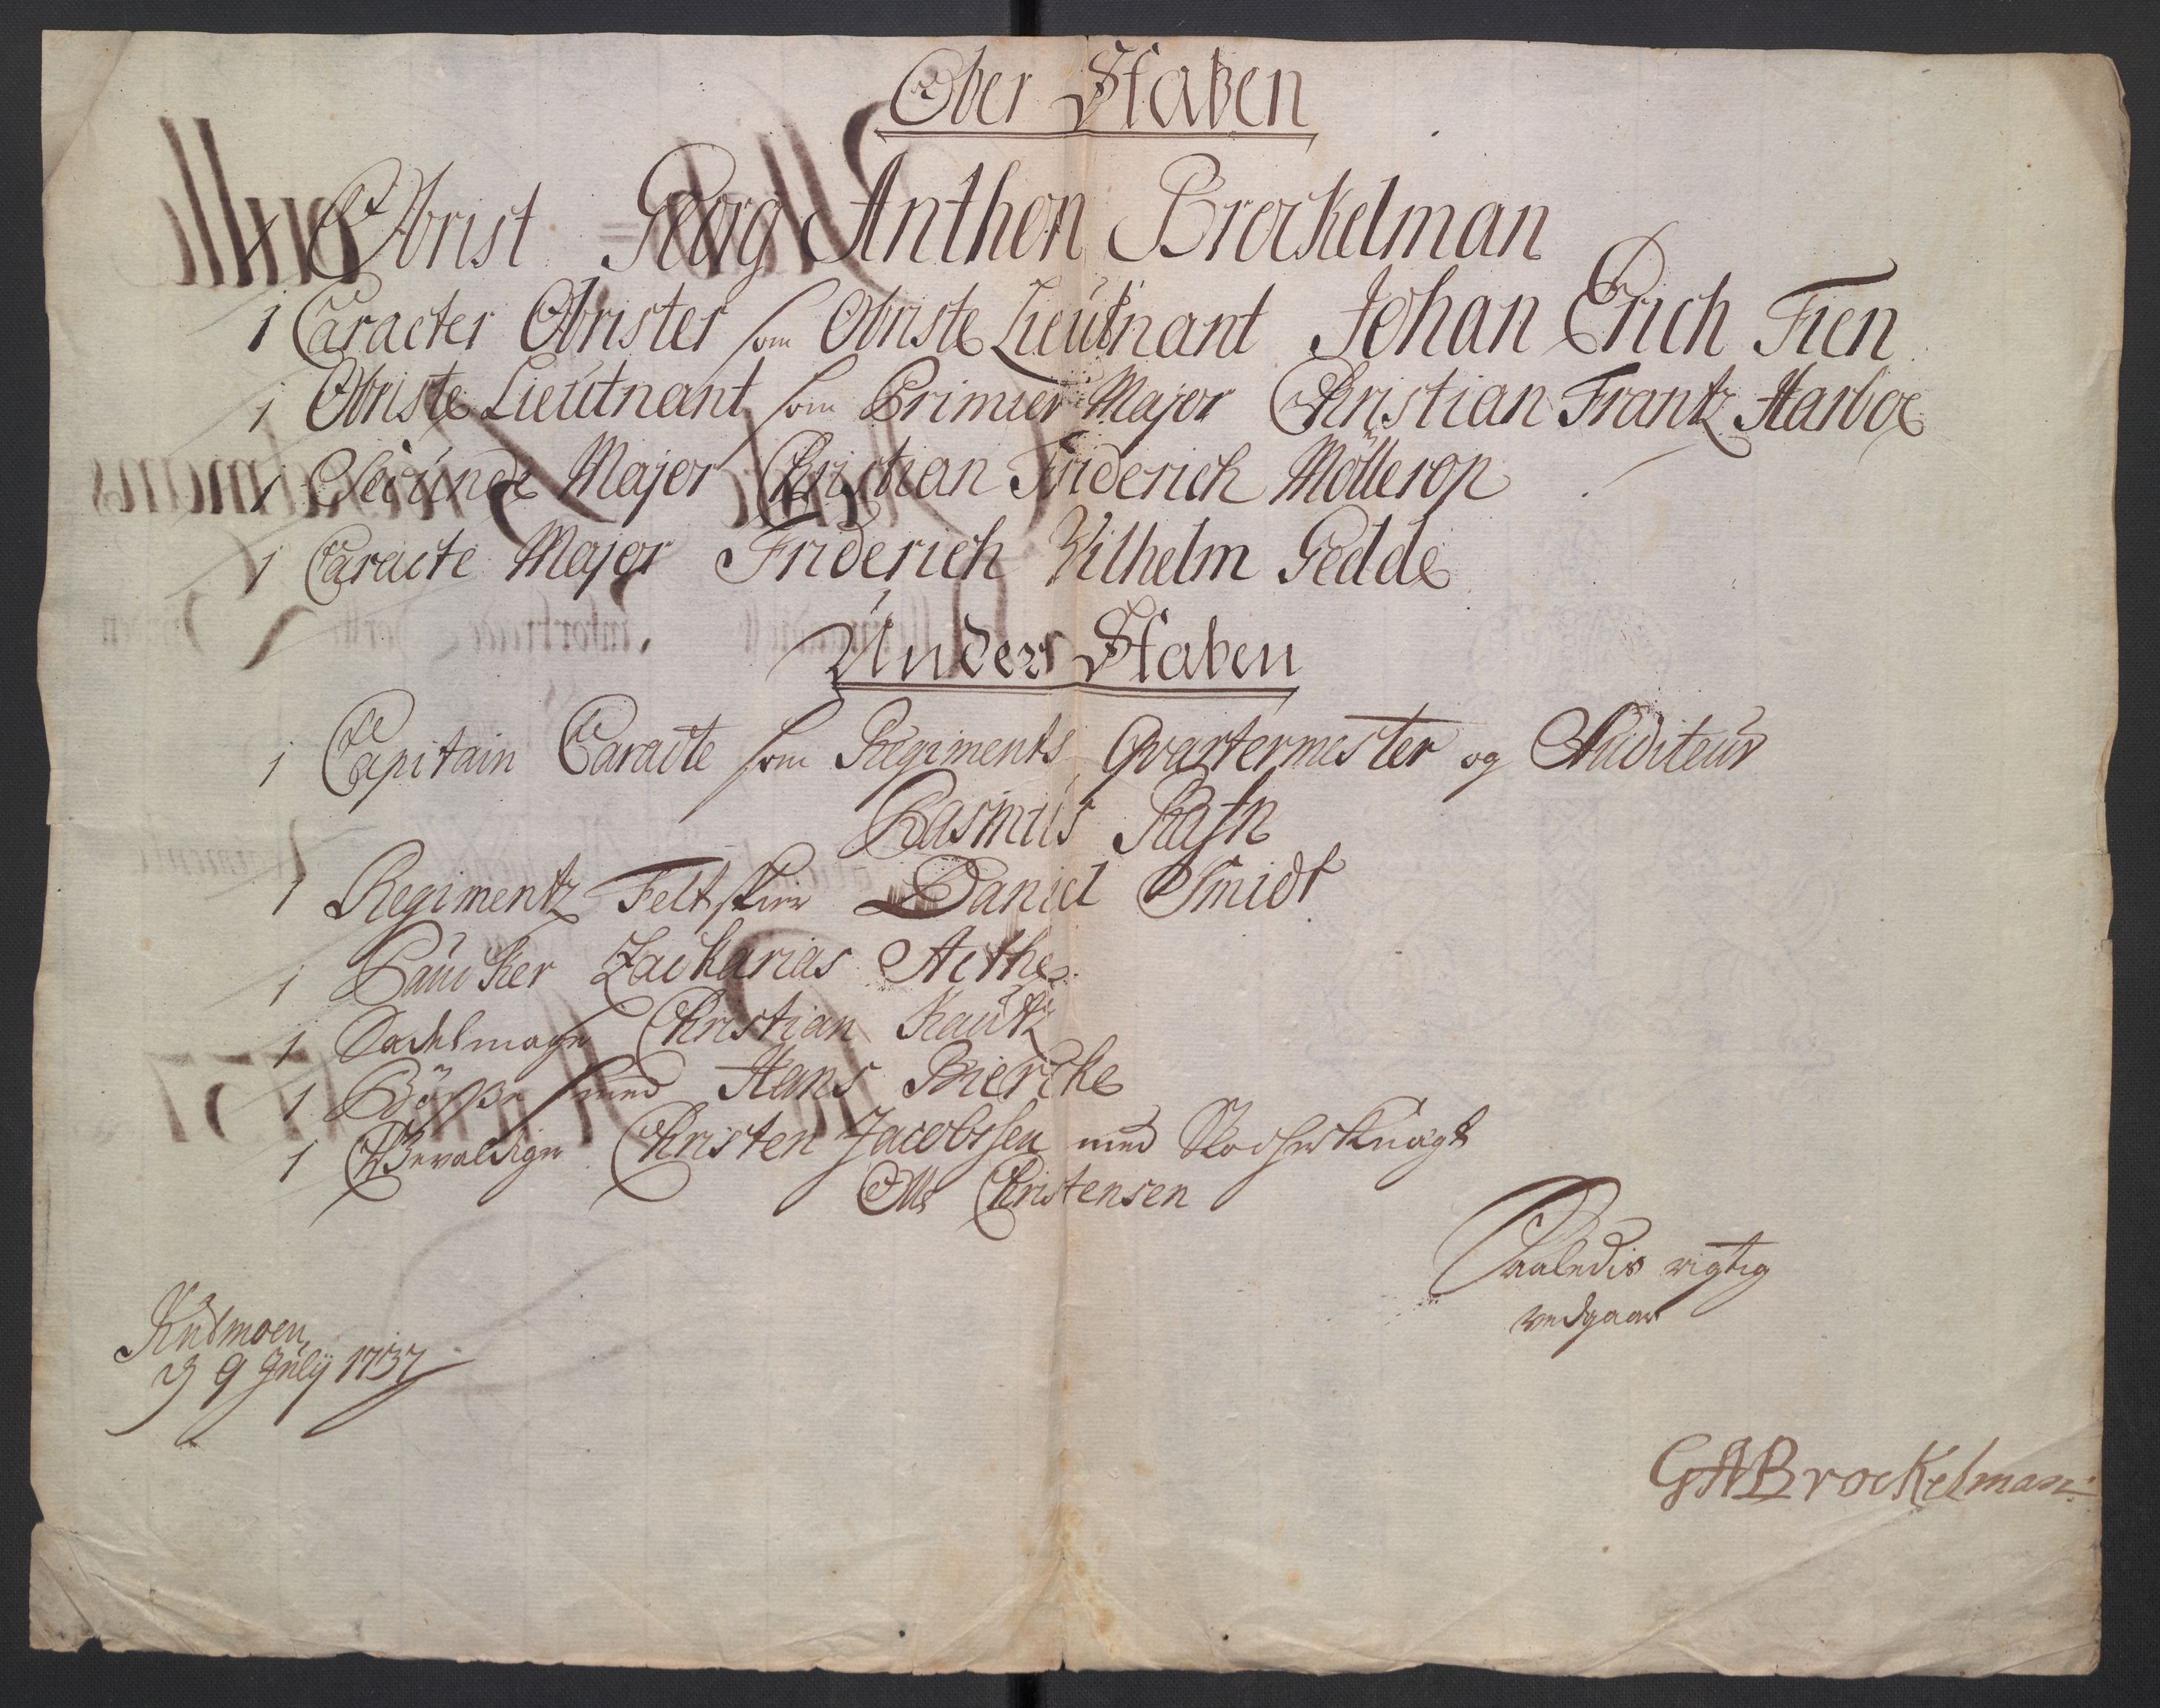 Ober Staben
1 Obrist Georg Anthon Brockelman
1 Caracter Obrister som Obriste Lieutnant Johan Erich Fien
1 Obriste Lieutnant som Primier Major Christian Frantz Harboe
1 Secunde Major Christian Friderich Möllerop
1 Caracte Major Friderich Wilhelm Gedde
Under Staben
1 Capitain Caracte som Regiments Qvartermester og Auditeur
Rasmus Rafn
1 Regimentz Feltskier Daniel Smidt
1 Paucker Zackarias Acthe
1 Sadelmager Christian Kautz
1 Bösse smed Hans Biercke
1 Gevaldiger Christen Jacobssen med Stocker Knegt
Ole Christensen
Saaledis rigtig
vedgaar
9 July 1737
GABrockelman